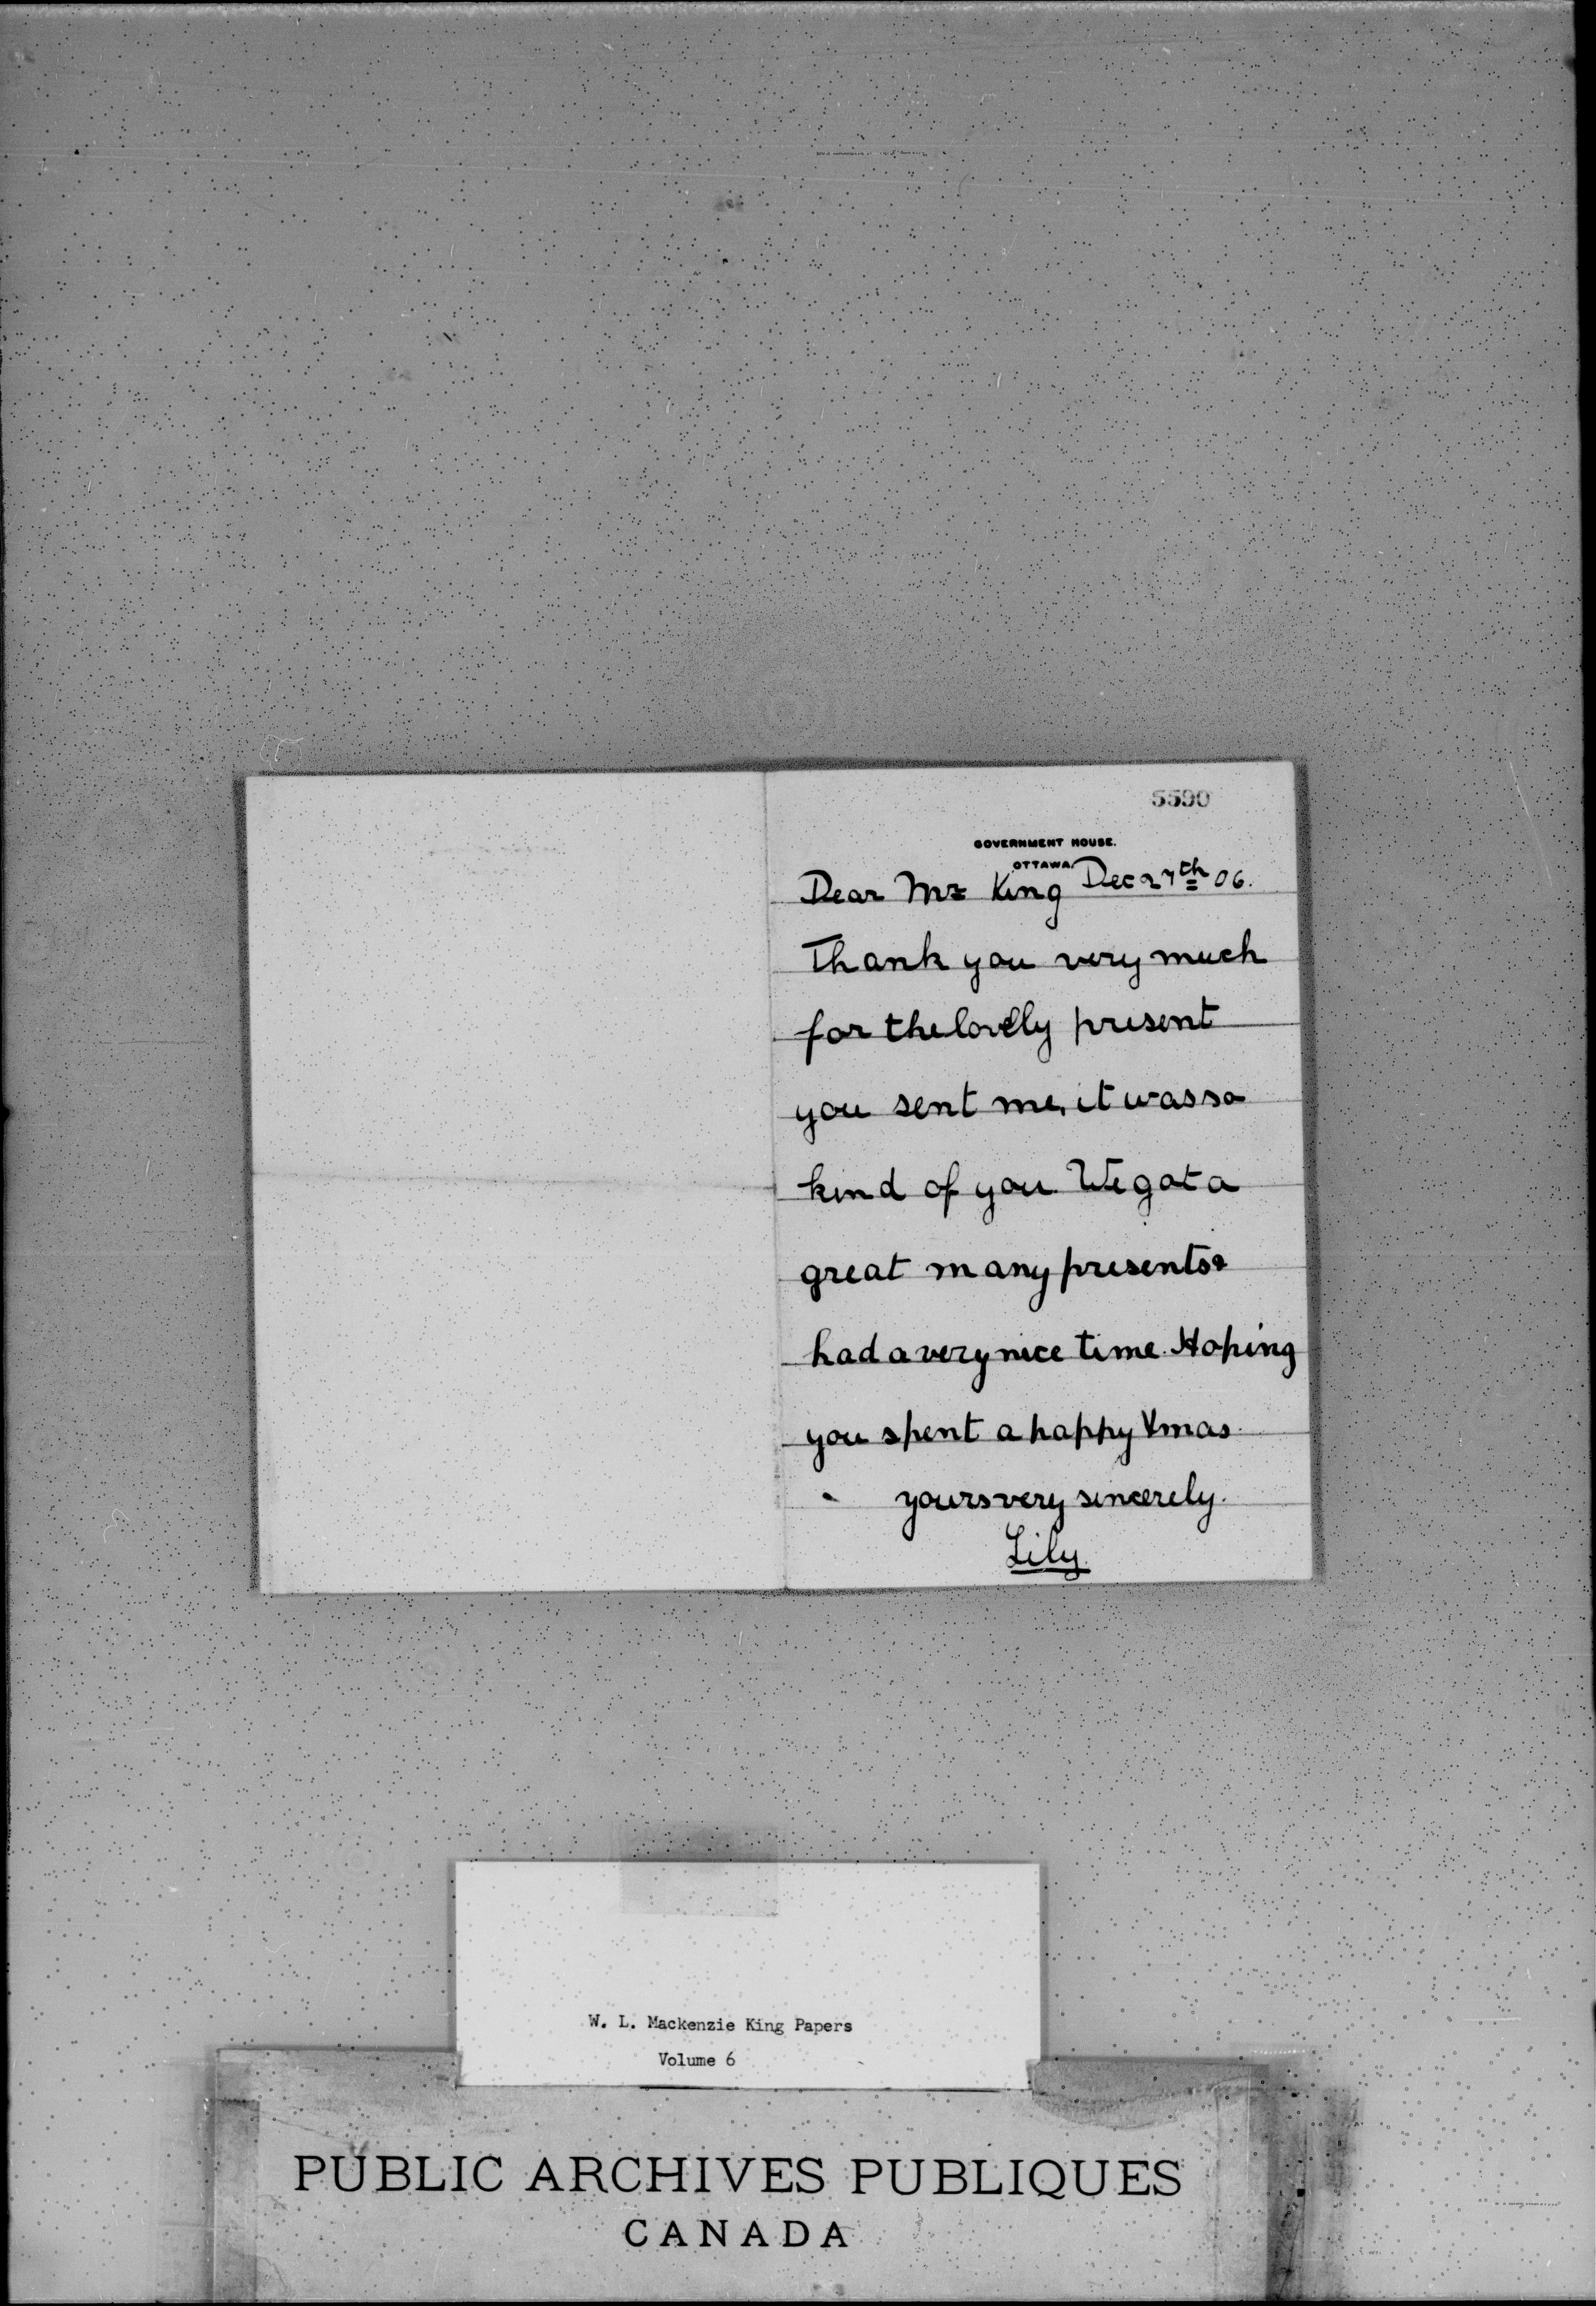 5590
GOVERNMENT HOUSE.
OTTAWA.
Dec 27th 06.
Dear Mr King
Thank you very much
for the lovely present
you sent me, it was so
kind of you. We got a
great many presents &
had a very nice time. Hoping
you spent a happy Xmas.
yours very sincerely.
Lily
W. L. Mackenzie King Papers
Volume 6
PUBLIC ARCHIVES PUBLIQUES
CANADA